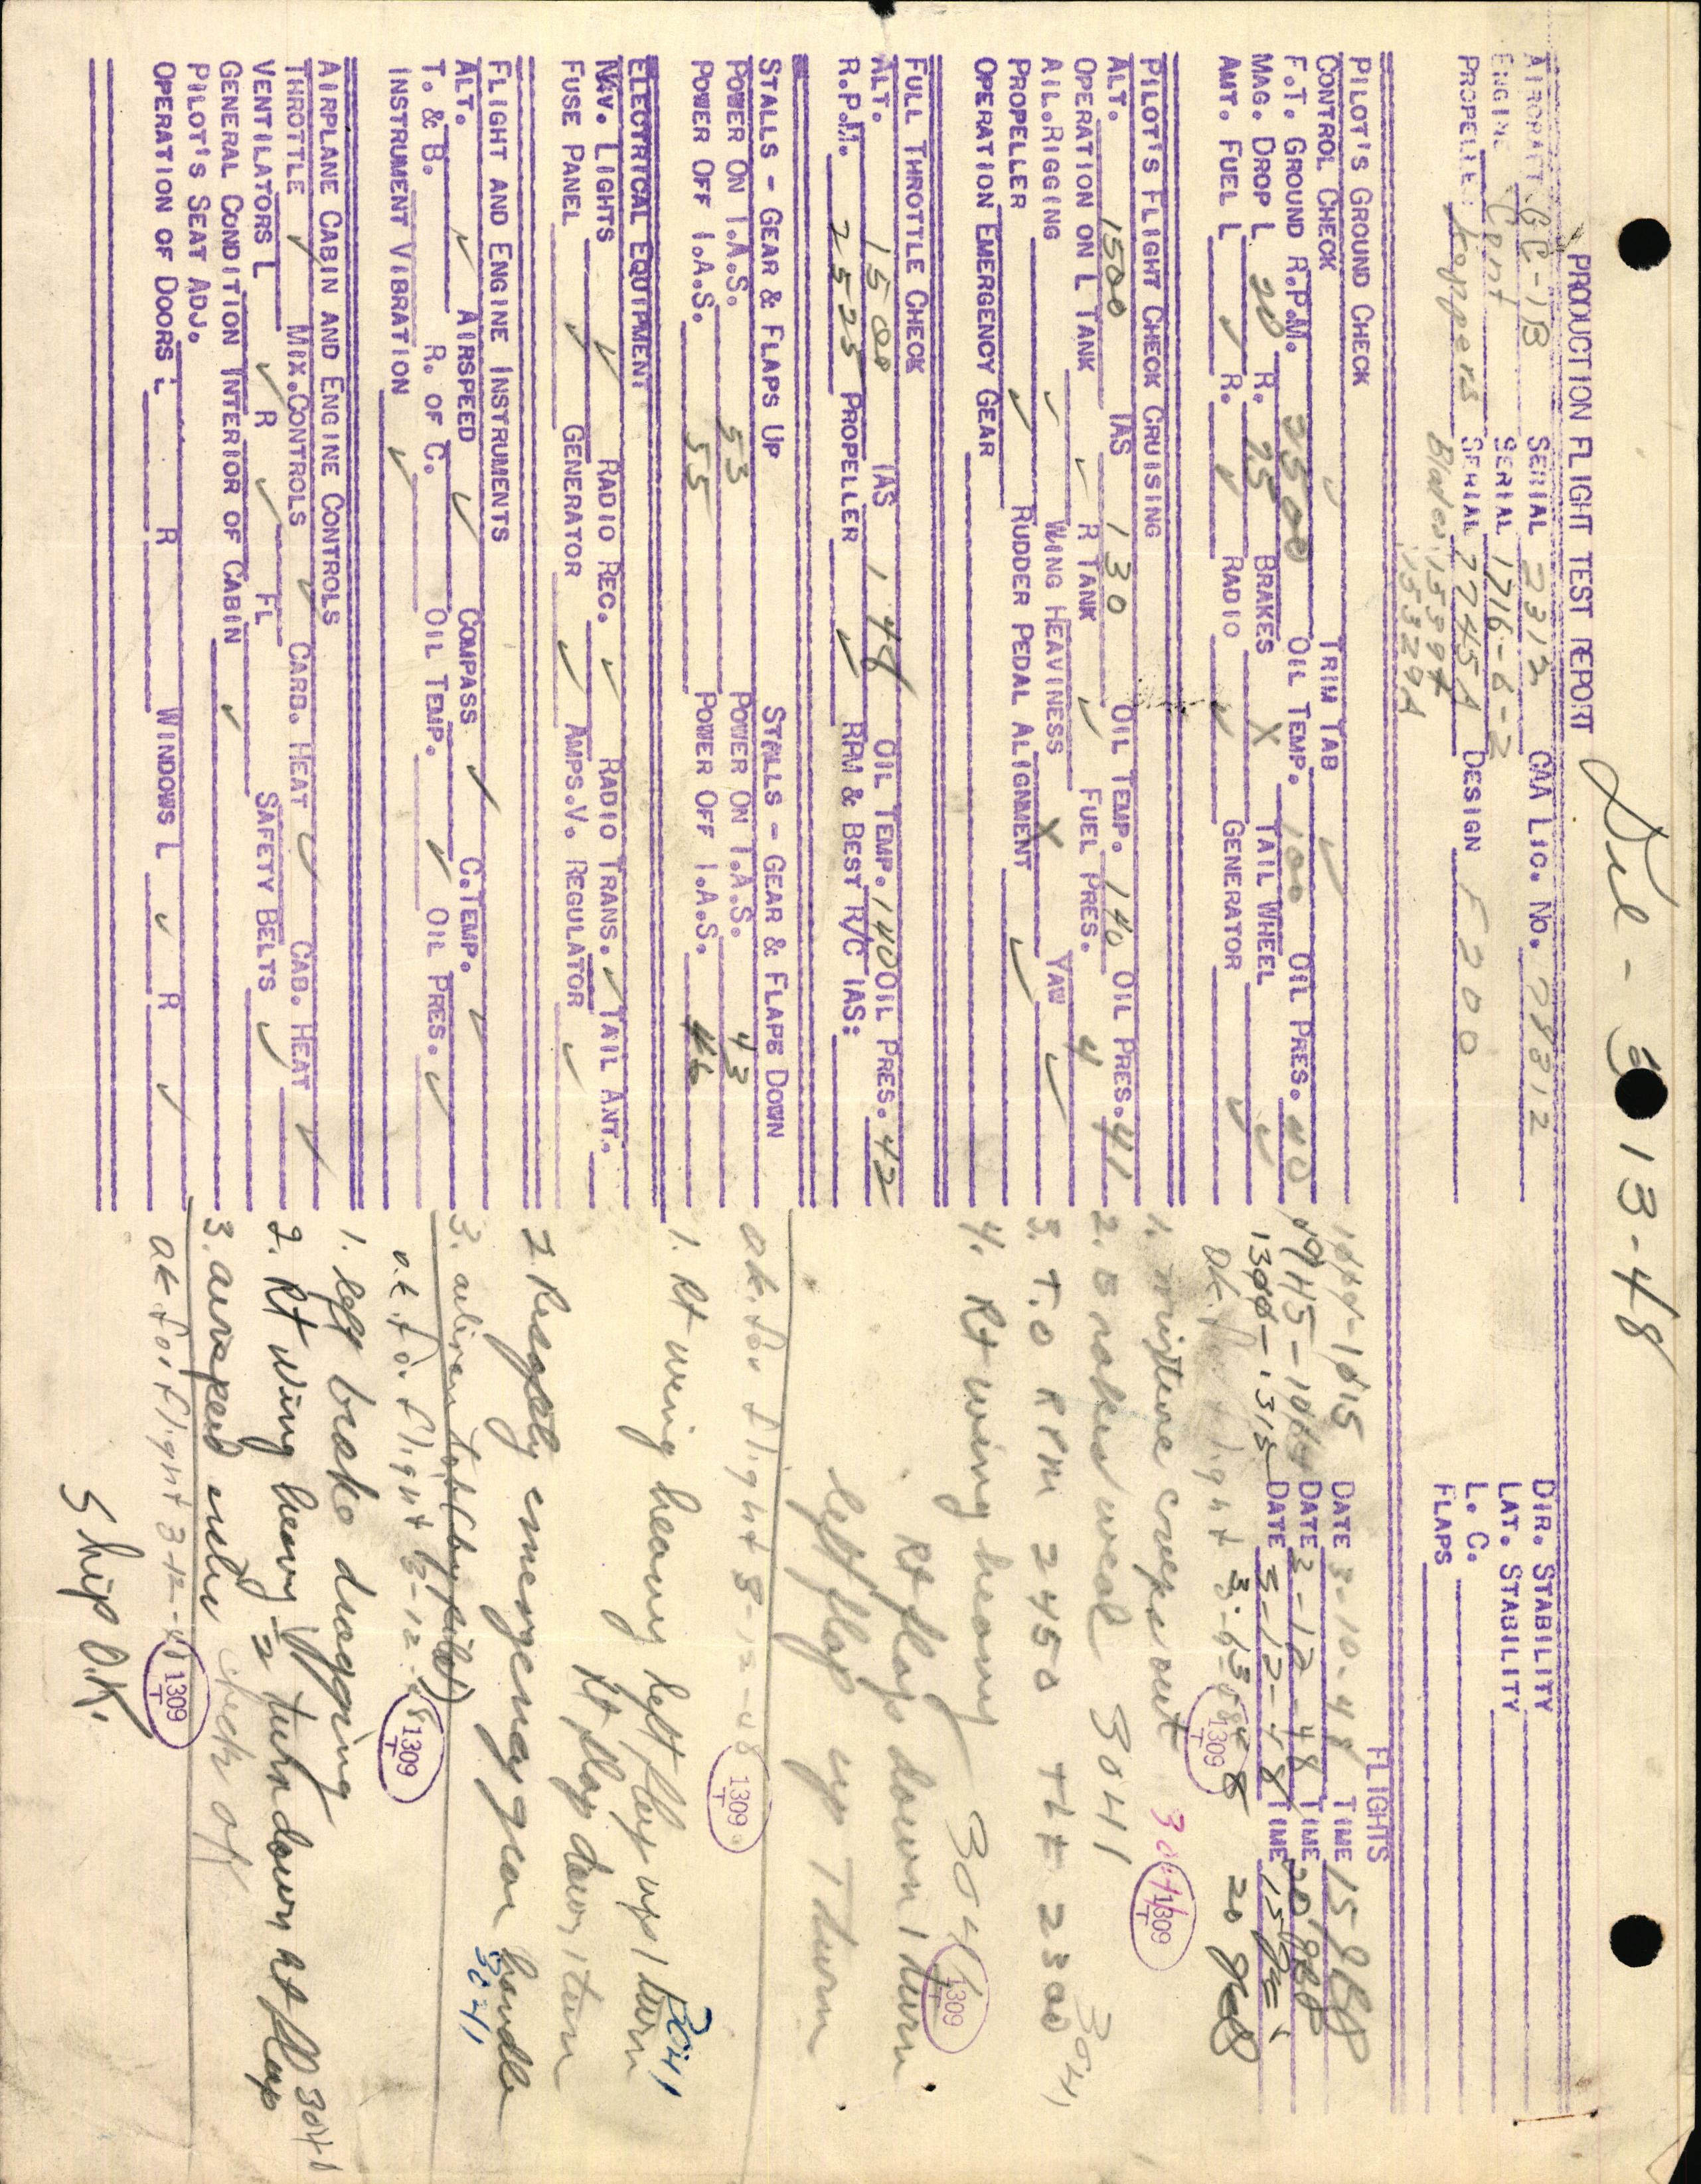 Del - 3-13-48
PRODUCTION FLIGHT TEST REPORT
AIRCRAFT GC-1B SERIAL 2312 CAA LIC. NO. 78812 DIR. STABILITY
ENGINE Cont SERIAL 1716-6-2 LAT. STABILITY
PROPELLER Koppers SERIAL 7745A DESIGN F200 L. C.
Blades 15397A FLAPS
15329A
FLIGHTS
PILOT'S GROUND CHECK
CONTROL CHECK ✓ TRIM TAB ✓ DATE 3-10-48 TIME 15
F.T. GROUND R.P.M. 2500 OIL TEMP. 100 OIL PRES. 40 0945- DATE 3-12-48 TIME 20
MAG. DROP L 20 R. 25 BRAKES X TAIL WHEEL ✓ 1300-1315 DATE 3-12-48 TIME 15
AMT. FUEL L ✓ R. ✓ RADIO ✓ GENERATOR ✓ OK. for flight 20
PILOT'S FLIGHT CHECK CRUISING 1. mixture creeps out 3041 1309 T
ALT. 1500 IAS 130 OIL TEMP. 140 OIL PRES. 41 2. Brakes weak 3041
OPERATION ON L TANK ✓ R TANK ✓ FUEL PRES. 4
AIL.RIGGING ✓ WING HEAVINESS X YAW ✓ 3. T.O RPM 2450 2300 3041
PROPELLER ✓ RUDDER PEDAL ALIGNMENT ✓
OPERATION EMERGENCY GEAR 4. Rt wing heavy 3041 1309 T
FULL THROTTLE CHECK Rt flap down 1 turn
ALT. 1500 IAS 148 OIL TEMP. 140 OIL PRES. 42
R.P.M. 2525 PROPELLER ✓ RPM & BEST R/C IAS: left flap up 1 turn
STALLS - GEAR & FLAPS UP STALLS - GEAR & FLAPS DOWN
POWER ON I.A.S. 53 POWER ON I.A.S. 43 ok. for flight 3-12-48 1309 T
POWER OFF I.A.S. 55 POWER OFF I.A.S. 46
ELECTRICAL EQUIPMENT 1. Rt wing heavy left flap up 1 turn 3041
NAV. LIGHTS ✓ RADIO REC. ✓ RADIO TRANS. ✓ TAIL ANT. Rt flap down 1 turn
FUSE PANEL ✓ GENERATOR ✓ AMPS.V. REGULATOR ✓
FLIGHT AND ENGINE INSTRUMENTS 2. Resafety emergency gear handle 3041
ALT. ✓ AIRSPEED ✓ COMPASS ✓ C.TEMP. ✓ 3. aileron tab (by pilot)
T. & B. R. OF C. OIL TEMP. ✓ OIL PRES. ✓
INSTRUMENT VIBRATION ✓ o.k. for flight 3-12-48 1309 T
AIRPLANE CABIN AND ENGINE CONTROLS 1. left brake dragging
THROTTLE ✓ MIX.CONTROLS ✓ CARB. HEAT ✓ CAB. HEAT ✓
VENTILATORS L ✓ R ✓ FL SAFETY BELTS ✓ 2. Rt wing heavy turn down rt flap 3041
GENERAL CONDITION INTERIOR OF CABIN ✓
PILOT'S SEAT ADJ. 3. airspeed check ok
OPERATION OF DOORS L R WINDOWS L ✓ R ✓ ok for flight 3-12-48 1309 T
Ship O.K.